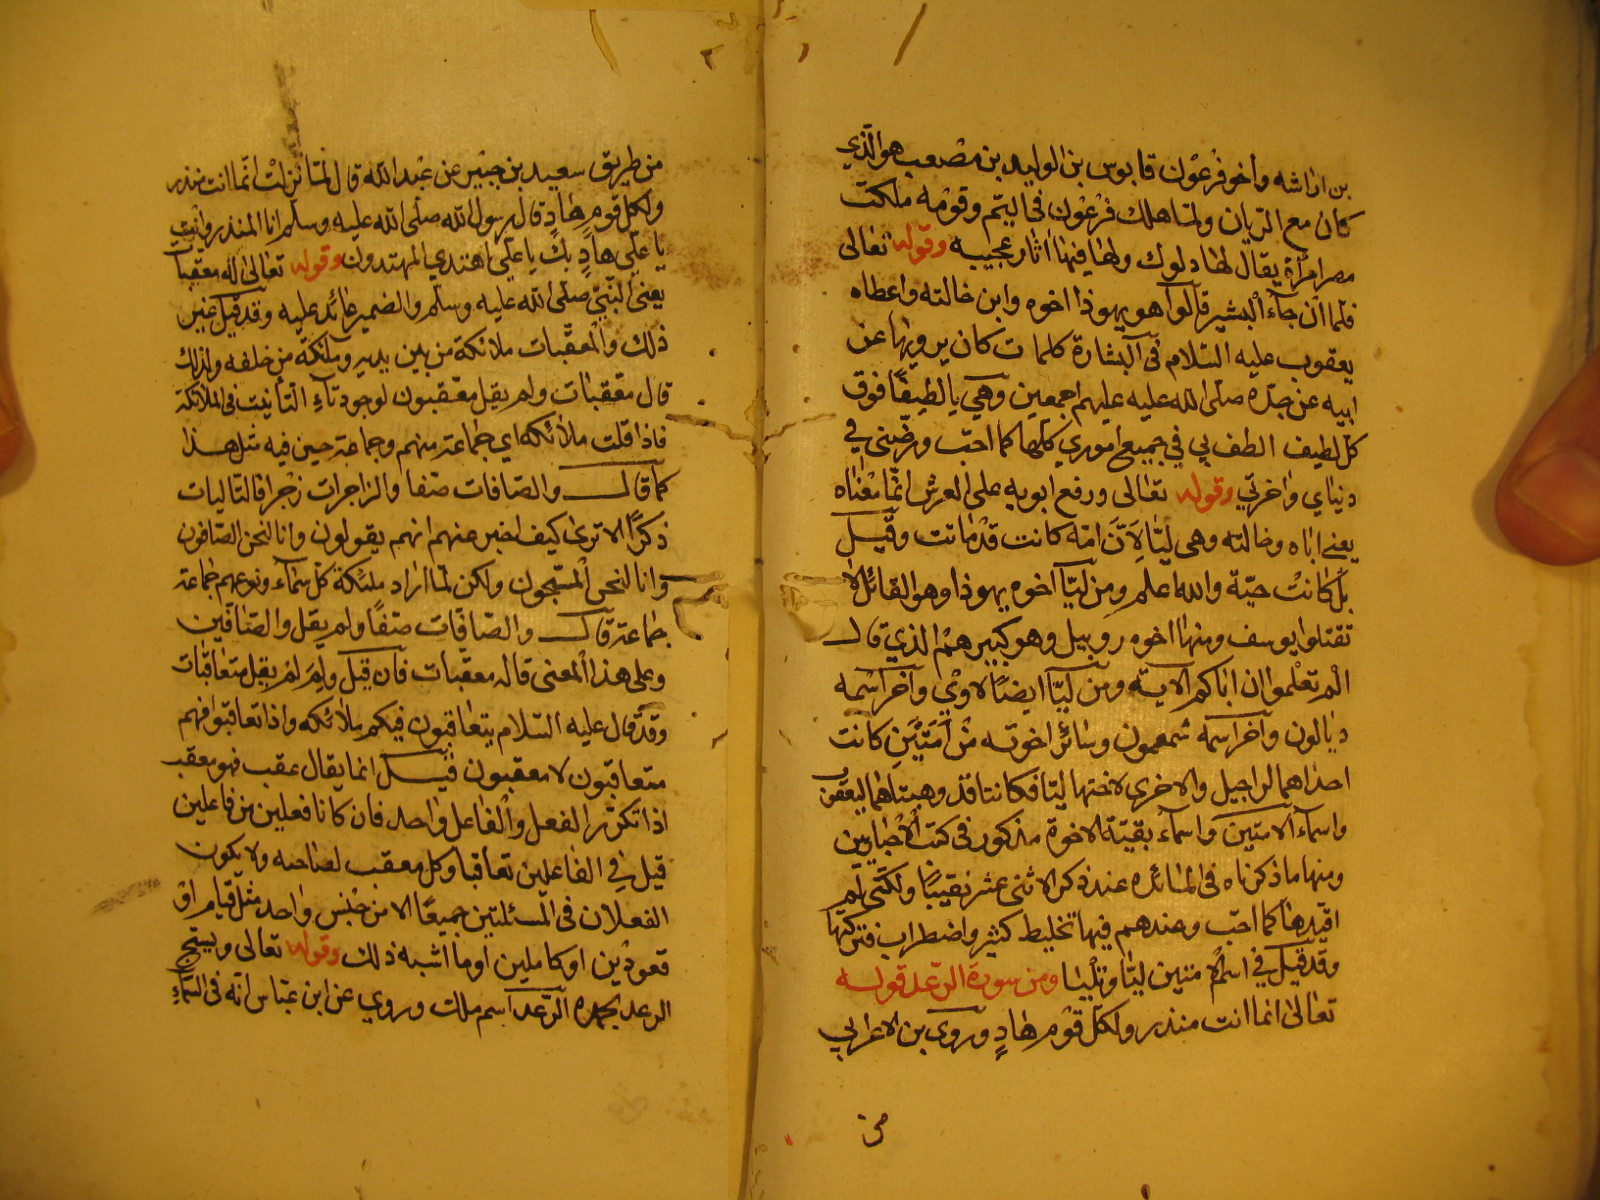 بن اراشه وأخو فرعون قابوس بن الوليد بن مصعب هو الّذي
كان مع الريان ولما هلك فرعون في اليمّ وقومه ملكت
مصر امرأة يقال لها دلوك ولها فيها اثار عجيبه وقوله تعالى
فلما ان جآء البشير قالوا هو يهوذا اخوه وابن خالته واعطاه
يعقوب عليه السلام في البشارة كلمات كان يرويها عن
ابيه عن جدّه صلى الله عليه عليهم اجمعين وهي يا لطيفًا فوق
كل لطيف الطف بي في جميع اموري كلها كما احب ورضّني في
دنياي واخرتي وقوله تعالى ورفع ابويه على العرش انما معناه
يعني اباه وخالته وهي ليّا لِاَنّ امّه كانت قد ماتت وقيل
بل كانت حيّة والله اعلم ومن ليّا اخوه يهوذا وهو القائل لا
تقتلوا يوسف ومنها اخوه روبيل وهو كبيرهم الذي قال
الم تعلموا ان اباكم الآيه ومن ليّا ايضًا لاوي واخر اسمه
ديالون وآخر اسمه شمعون وسائر اخوته من اَمَتَيْنِ كانت
احداهما لراحيل والاخرى لاختها ليّا فكانتا قد وهبتاهما ليعقوب
واسمآء الامتين واسمآء بقيّة الاخوة مذكور في كتب الأخباريين
ومنها ما ذكرناه في المائده عند ذكر الاثنى عشر نقيبًا ولكنّي لم
اقيّدها كما احبّ وعندهم فيها تخليط كثير واضطراب فتركتها
وقد قيل في اسم الامتين ليّا وتلْيا ومن سورة الرّعد قوله
تعالى انما انت منذر ولكل قوم هادٍ وروى بن الاعرابي
من
من طريق سعيد بن جبير عن عبد الله قال لما نزلت انما انت منذر
ولكل قوم هادٍ قال رسول الله صلى الله عليه وسلم انا المنذر وانت
يا علي هادٍ بك يا علي اهتدي المهتدون وقوله تعالى له معقبات
يعني النّبيّ صلى الله عليه وسلم والضمير عائد عليه وقد قيل غير
ذلك والمعقّبات ملائكة من بين يديه وملئكة من خلفه ولذلك
قال معقبات ولم يقل معقبون لوجود تآءِ التأنيث في الملائكة
فاذا قلت ملائكه اي جماعة منهم وجماعة حين فيه مثل هذا
كما قال والصّافات صفا والزاجرات زجرا فالتاليات
ذكرًا الا ترى كيف اخبر عنهم انهم يقولون وانا لنحن الصافون
وانا لنحن المسبّحون ولكن لما اراد ملئكة كل سمآء ونوعهم جماعة
جماعة قال والصافات صفاً ولم يقل والصافين
وعلى هذا المعنى قال له معقبات فان قيل ولِمَ لم يقل متعاقبات
وقد قال عليه السلام يتعاقبون فيكم ملائكه واذا تعاقبوا فهم
متعاقبون لا معقبون قيل انما يقال عقب فهو معقب
اذا تكرّر الفعل والفاعل واحد فان كانا فعلين من فاعلين
قيل في الفاعلين تعاقبا وكل معقب لصاحبه ولا يكون
الفعلان في المسئلتين جميعًا الا من جنس واحد مثل قيام او
قعودين او كاملين او ما اشبه ذلك وقوله تعالى ويسبّح
الرعد بحمده الرّعد اسم ملك وروي عن ابن عبّاس انه في السمآءِ